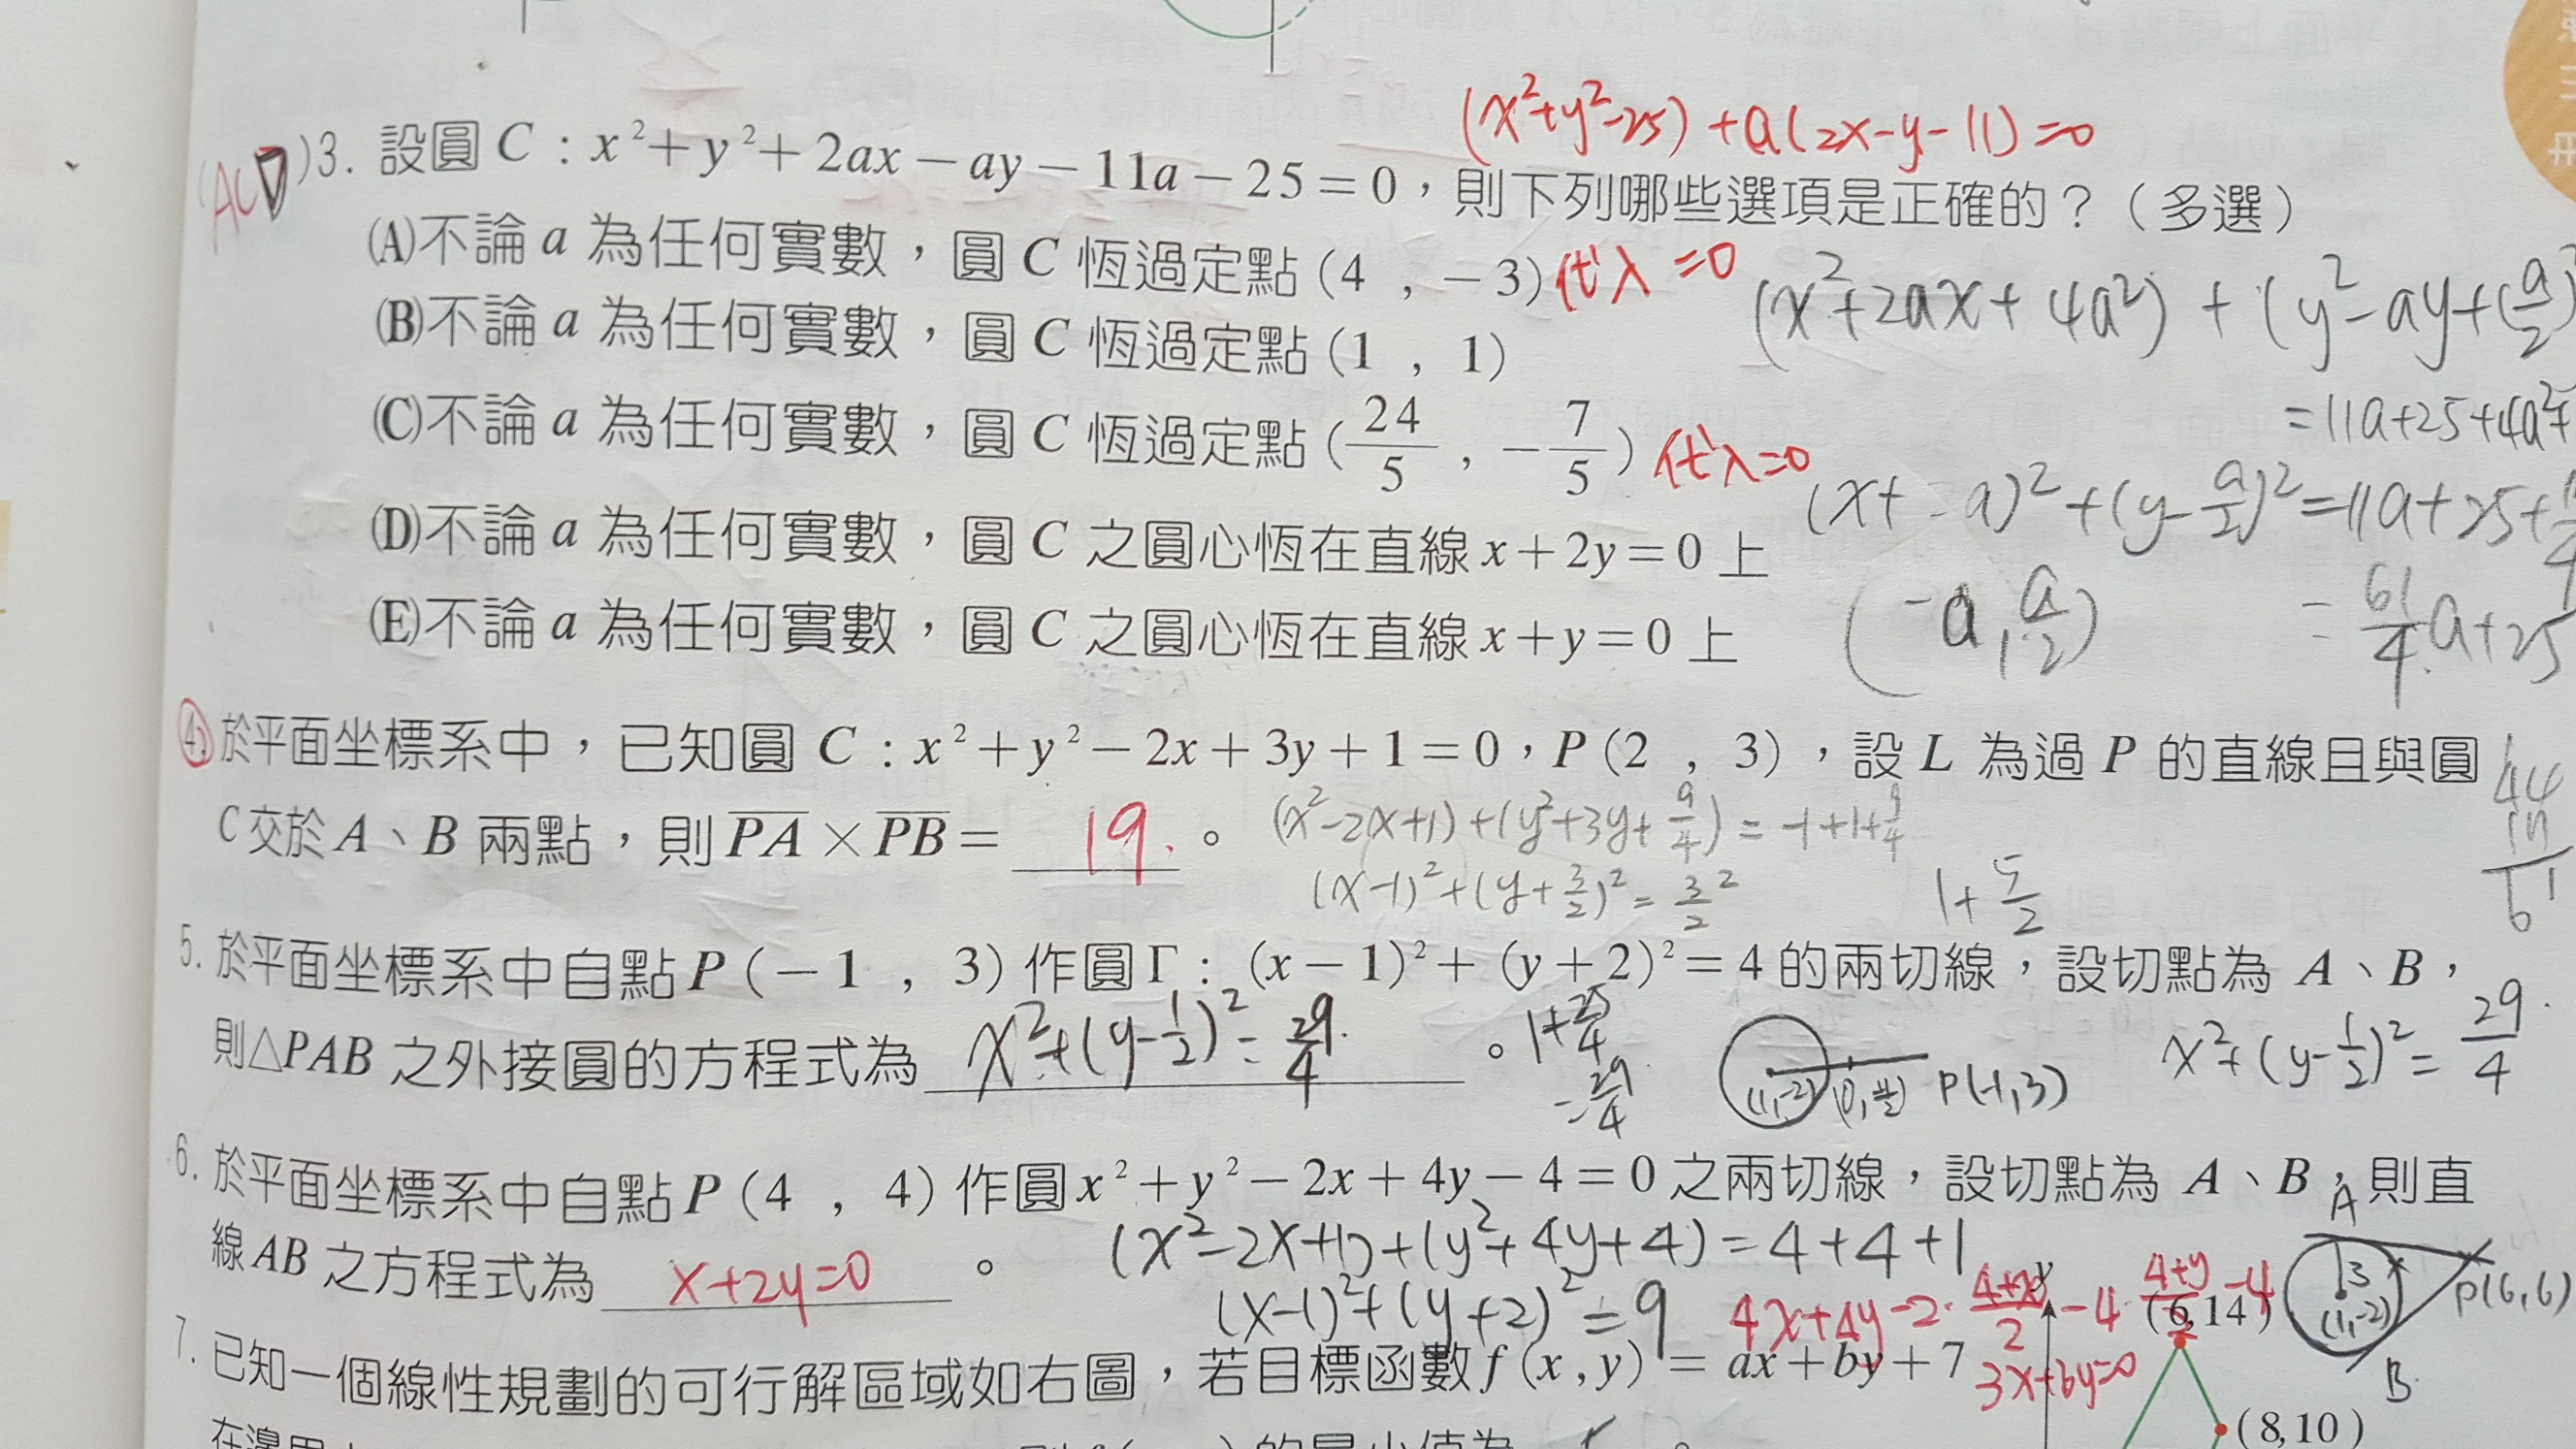 (x²+y²-25)+a(2x-y-11)=0
(ACD)3. 設圓 C：x²+y²+2ax－ay－11a－25=0，則下列哪些選項是正確的？（多選）
(A)不論 a 為任何實數，圓 C 恆過定點(4 , －3) 代λ=0
(x²+2ax+4a²)+(y²-ay+(a/2)
(B)不論 a 為任何實數，圓 C 恆過定點(1 , 1)
=11a+25+4a²+
(C)不論 a 為任何實數，圓 C 恆過定點(24/5 , －7/5) 代λ=0
(x+ a)²+(y-a/2)²=11a+25+
(D)不論 a 為任何實數，圓 C 之圓心恆在直線 x+2y=0 上
(-a, a/2)
= 61/4 a+25
(E)不論 a 為任何實數，圓 C 之圓心恆在直線 x+y=0 上
4. 於平面坐標系中，已知圓 C：x²+y²－2x+3y+1=0，P(2 , 3)，設 L 為過 P 的直線且與圓
C交於 A、B 兩點，則 PA×PB= 19. 。
(x²-2x+1)+(y²+3y+9/4)=-1+1+9/4
(x-1)²+(y+3/2)²=3/2²
1+5/2
44
17
61
5. 於平面坐標系中自點 P(－1 , 3) 作圓Γ：(x－1)²+(y+2)²=4 的兩切線，設切點為 A、B，
則△PAB 之外接圓的方程式為 x²+(y-1/2)²=29/4. 。
1+25/4
=29/4
(1,-2) (0,1/2) P(-1,3)
x²+(y-1/2)²=29/4.
6. 於平面坐標系中自點 P(4 , 4) 作圓 x²+y²－2x+4y－4=0 之兩切線，設切點為 A、B，則直
A
線 AB 之方程式為 x+2y=0 。
(x²-2x+1)+(y²+4y+4)=4+4+1
(x-1)²+(y+2)²=9
4x+4y-2·4+x/2-4·4+y/2-4
3x+6y=0
3
(1,-2)
P(6,6)
B
y
(6,14)
7. 已知一個線性規劃的可行解區域如右圖，若目標函數 f(x,y)=ax+by+7
(8,10)
的最小值為